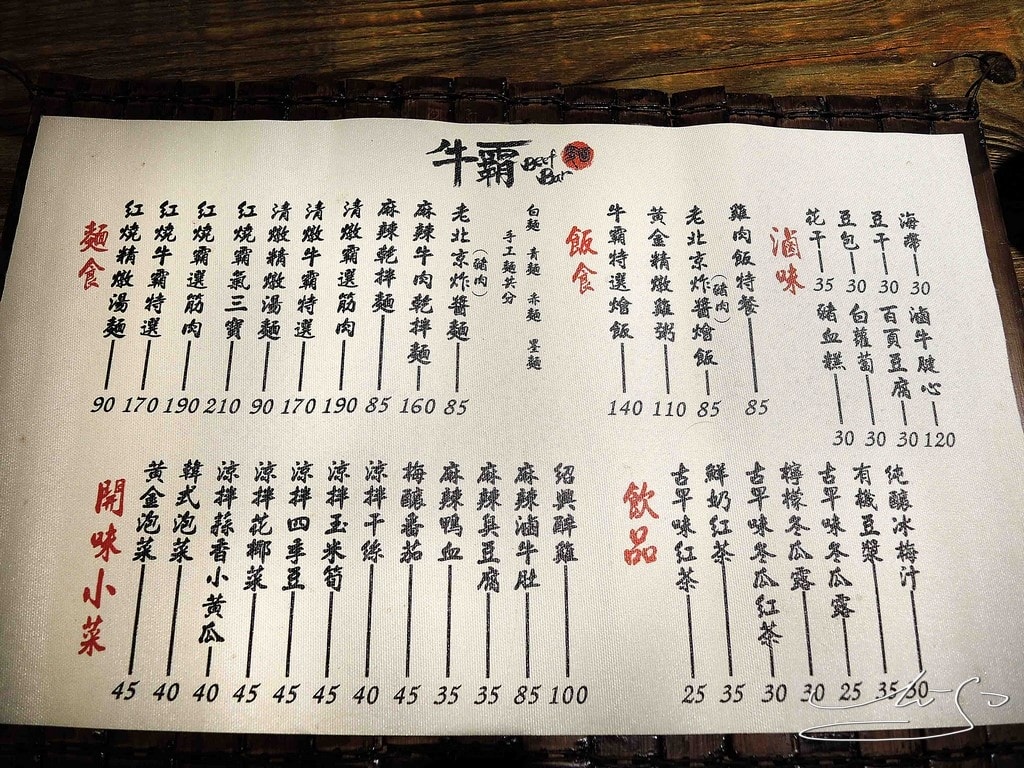 牛霸 Beef Bar
麵食
紅燒精燉湯麵 90
紅燒牛霸特選 170
紅燒霸選筋肉 190
紅燒霸氣三寶 210
清燉精燉湯麵 90
清燉牛霸特選 170
清燉霸選筋肉 190
麻辣乾拌麵 85
麻辣牛肉乾拌麵 160
老北京炸醬麵(豬肉) 85
手工麵共分
白麵 青麵 赤麵 墨麵
飯食
牛霸特選燴飯 140
黃金精燉雞粥 110
老北京炸醬燴飯(豬肉) 85
雞肉飯特餐 85
滷味
花干 35
豆包 30
豆干 30
海帶 30
豬血糕 30
白蘿蔔 30
百頁豆腐 30
滷牛腱心 120
開味小菜
黃金泡菜 45
韓式泡菜 40
涼拌蒜香小黃瓜 40
涼拌花椰菜 45
涼拌四季豆 45
涼拌玉米筍 45
涼拌干絲 40
梅釀蕃茄 45
麻辣鴨血 35
麻辣臭豆腐 35
麻辣滷牛肚 85
紹興醉雞 100
飲品
古早味紅茶 25
鮮奶紅茶 35
古早味冬瓜紅茶 30
檸檬冬瓜露 30
古早味冬瓜露 25
有機豆漿 35
純釀冰梅汁 50